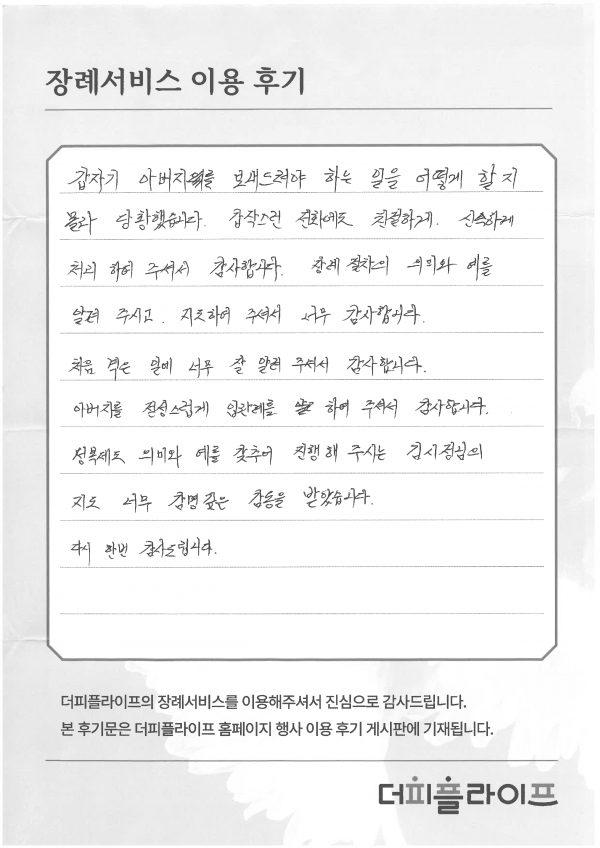 장례서비스 이용 후기
갑자기 아버지를 보내드려야 하는 일을 어떻게 할 지
몰라 당황했습니다. 갑작스런 전화에도 친절하게. 신속하게
처리 하여 주셔서 감사합니다. 장례 절차의 의미와 예를
알려 주시고. 지도하여 주셔서 너무 감사합니다.
처음 겪은 일에 너무 잘 알려 주셔서 감사합니다.
아버지를 정성스럽게 입관례를 하여 주셔서 감사합니다.
성복제도 의미와 예를 갖추어 진행해 주시는
지도 너무 감명깊은 감동을 받았습니다.
다시 한번 감사드립니다.
더피플라이프의 장례서비스를 이용해주셔서 진심으로 감사드립니다.
본 후기문은 더피플라이프 홈페이지 행사 이용 후기 게시판에 기재됩니다.
더피플라이프